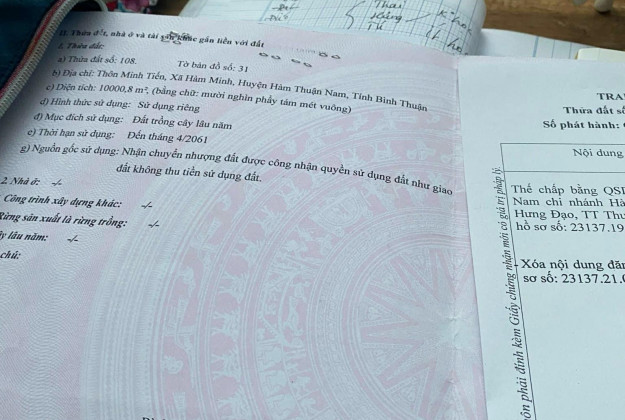 Thái
Hằng
II. Thửa đất, nhà ở và tài sản khác gắn liền với đất
1. Thửa đất:
a) Thửa đất số: 108. Tờ bản đồ số: 31
b) Địa chỉ: Thôn Minh Tiến, Xã Hàm Minh, Huyện Hàm Thuận Nam, Tỉnh Bình Thuận
c) Diện tích: 10000,8 m², (bằng chữ: mười nghìn phẩy tám mét vuông)
d) Hình thức sử dụng: Sử dụng riêng
đ) Mục đích sử dụng: Đất trồng cây lâu năm
e) Thời hạn sử dụng: Đến tháng 4/2061
g) Nguồn gốc sử dụng: Nhận chuyển nhượng đất được công nhận quyền sử dụng đất như giao
đất không thu tiền sử dụng đất.
2. Nhà ở: -/-
Công trình xây dựng khác: -/-
Rừng sản xuất là rừng trồng: -/-
y lâu năm: -/-
chú:
TRA
Thửa đất số
Số phát hành:
Nội dung
Thế chấp bằng QSI
Nam chi nhánh Hà
Hưng Đạo, TT Thu
hồ sơ số: 23137.19
Xóa nội dung đăn
sơ số: 23137.21.
ôn phải đính kèm Giấy chứng nhận mới có giá trị pháp lý.